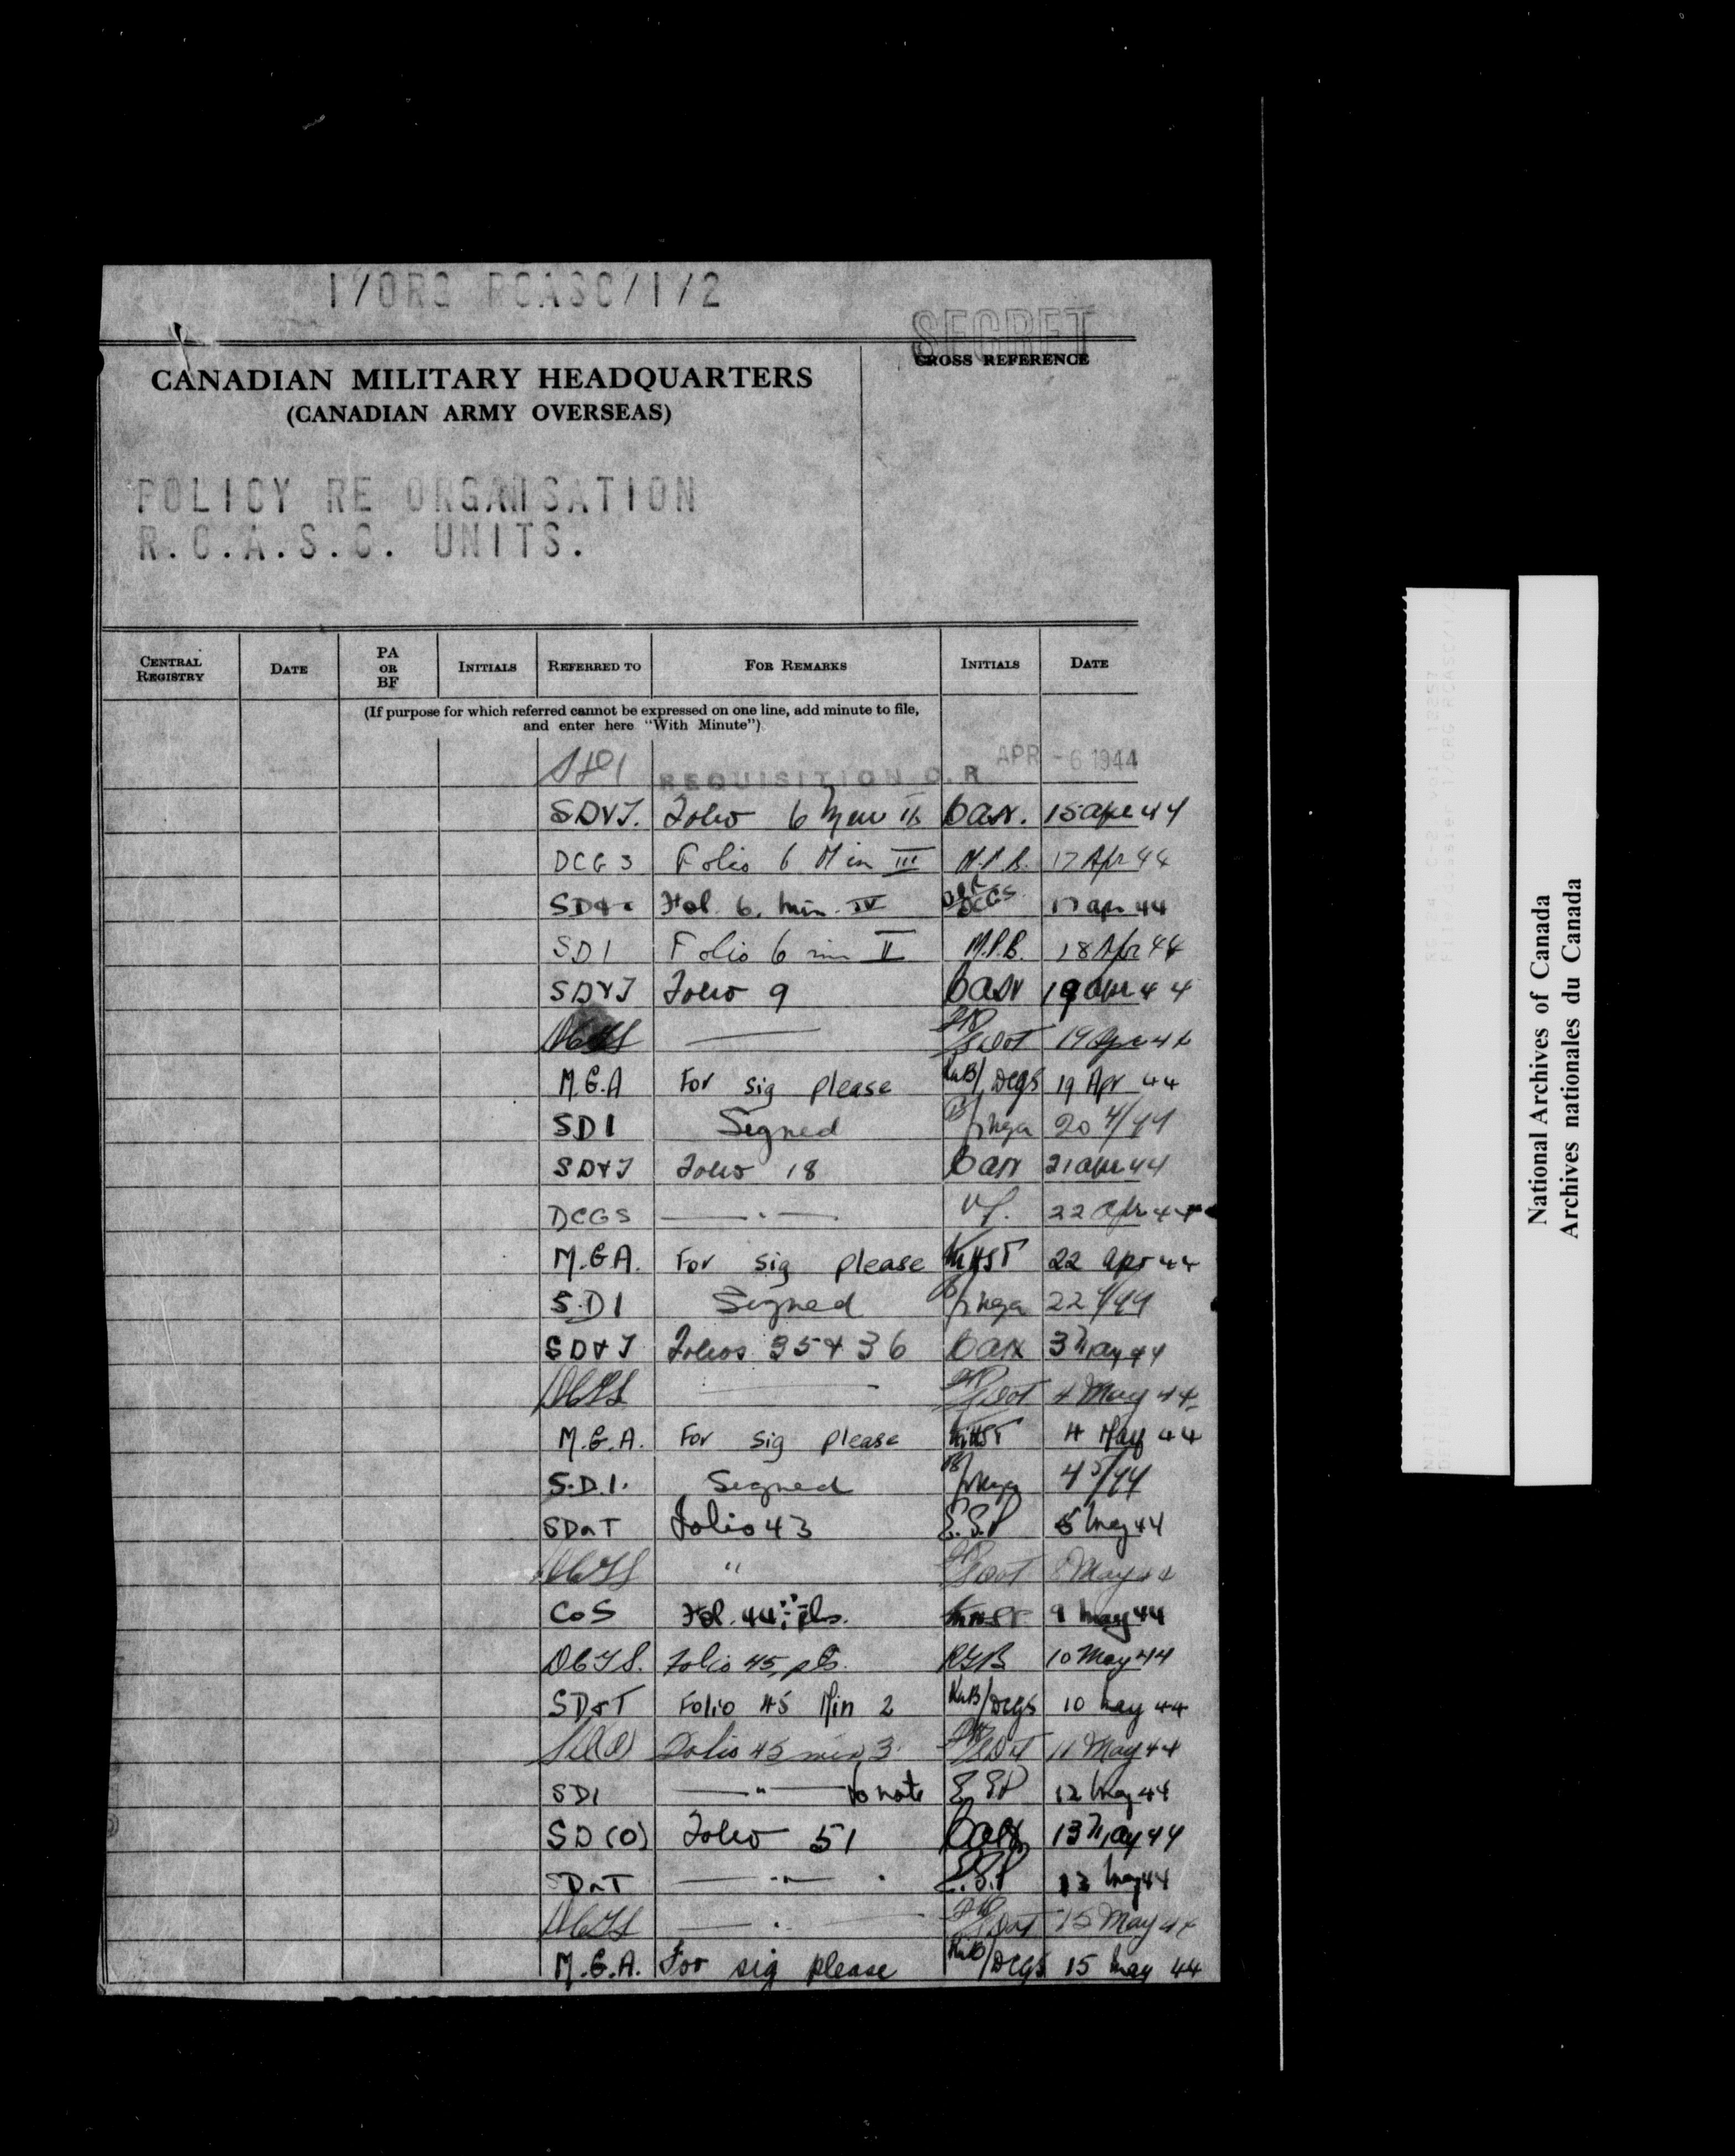 1/ORG RCASC/1/2
SECRET
CROSS REFERENCE
CANADIAN MILITARY HEADQUARTERS
(CANADIAN ARMY OVERSEAS)
POLICY RE ORGANISATION
R.C.A.S.C. UNITS.
CENTRAL REGISTRY DATE PA OR BF INITIALS REFERRED TO FOR REMARKS INITIALS DATE
(If purpose for which referred cannot be expressed on one line, add minute to file,
and enter here "With Minute")
SD1 REQUISITION O.R APR -6 1944
SD&T. Folio 6 Min II 15 Apr 44
DCGS Folio 6 Min III M.P.B. 17 Apr 44
Fol. 6. min. IV DCGS 17 apr 44
SD1 Folio 6 min II M.P.B. 18 Apr 44
SD&T Folio 9 19 Apr 44
DCGS 19 Apr 44
M.G.A For sig please DCGS 19 Apr 44
SD1 Signed mga 20 4/44
SD&T Folio 18 21 Apr 44
DCGS — " — 22 Apr 44
M.G.A. For sig please 22 Apr 44
S.D1 Signed mga 22 4/44
SD&T Folios 35 & 36 3 May 44
DCGS 4 May 44
M.G.A. For sig please 4 May 44
S.D.1. Signed mga 4 5/44
SD&T Folio 43 E.S.P 5 May 44
DCGS " 8 May 44
CoS Fol. 44 pls. 9 May 44
DCGS. Folio 45, pls. 10 May 44
SD&T Folio 45 Min 2 DCGS 10 May 44
SD(O) Folio 45 min 3 11 May 44
SD1 — " — to note E.S.P 12 May 44
SD(O) Folio 51 13 May 44
SD&T — " — E.S.P 13 May 44
DCGS — " — 15 May 44
M.G.A. For sig please DCGS 15 May 44
National Archives of Canada
Archives nationales du Canada